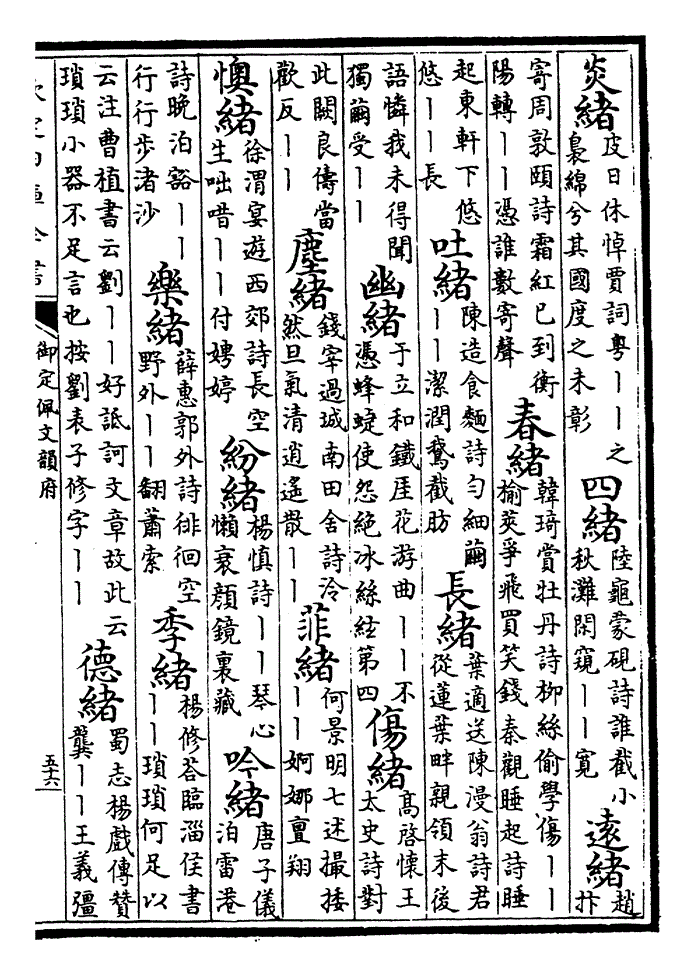 炎緒 皮日休悼賈詞粤丨丨之
裊綿兮其國度之未彰
四緒 陸龜蒙硯詩誰截小
秋灘閑窺丨丨寬
遠緒 趙
抃
寄周敦頤詩霜紅已到衡
陽轉丨丨憑誰數寄聲
春緒 韓琦賞牡丹詩柳絲偷學傷丨丨
榆莢爭飛買笑錢秦觀睡起詩睡
起東軒下悠
悠丨丨長
吐緒 陳造食麵詩匀細繭
丨丨潔潤鵞截肪
長緒 葉適送陳漫翁詩君
從蓮葉畔親領末後
語憐我未得聞
獨繭受丨丨
幽緒 于立和鐵厓花游曲丨丨不
憑蜂蜨使怨絶冰絲絃第四
傷緒 髙啓懷王
太史詩對
此闕良儔當
歡反丨丨
塵緒 錢宰過城南田舍詩泠
然旦氣清逍遥散丨丨
菲緒 何景明七述撮捼
丨丨婀娜亶翔
懊緒 徐渭宴遊西郊詩長空
生咄唶丨丨付娉婷
紛緒 楊慎詩丨丨琴心
懶衰顔鏡裏藏
吟緒 唐子儀
泊雷港
詩晚泊谿丨丨
行行步渚沙
樂緒 薛惠郭外詩徘徊空
野外丨丨翻蕭索
季緒 楊修荅臨淄侯書
丨丨瑣瑣何足以
云注曹植書云劉丨丨好詆訶文章故此云
瑣瑣小器不足言也按劉表子修字丨丨
德緒 蜀志楊戲傳贊
龔丨丨王義彊
欽定四庫全書
御定佩文韻府
五十六